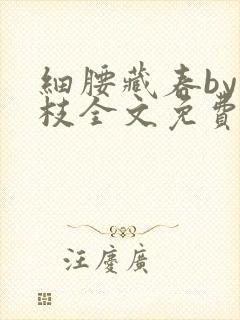 細腰藏春by
枝全文免費
汪慶廣